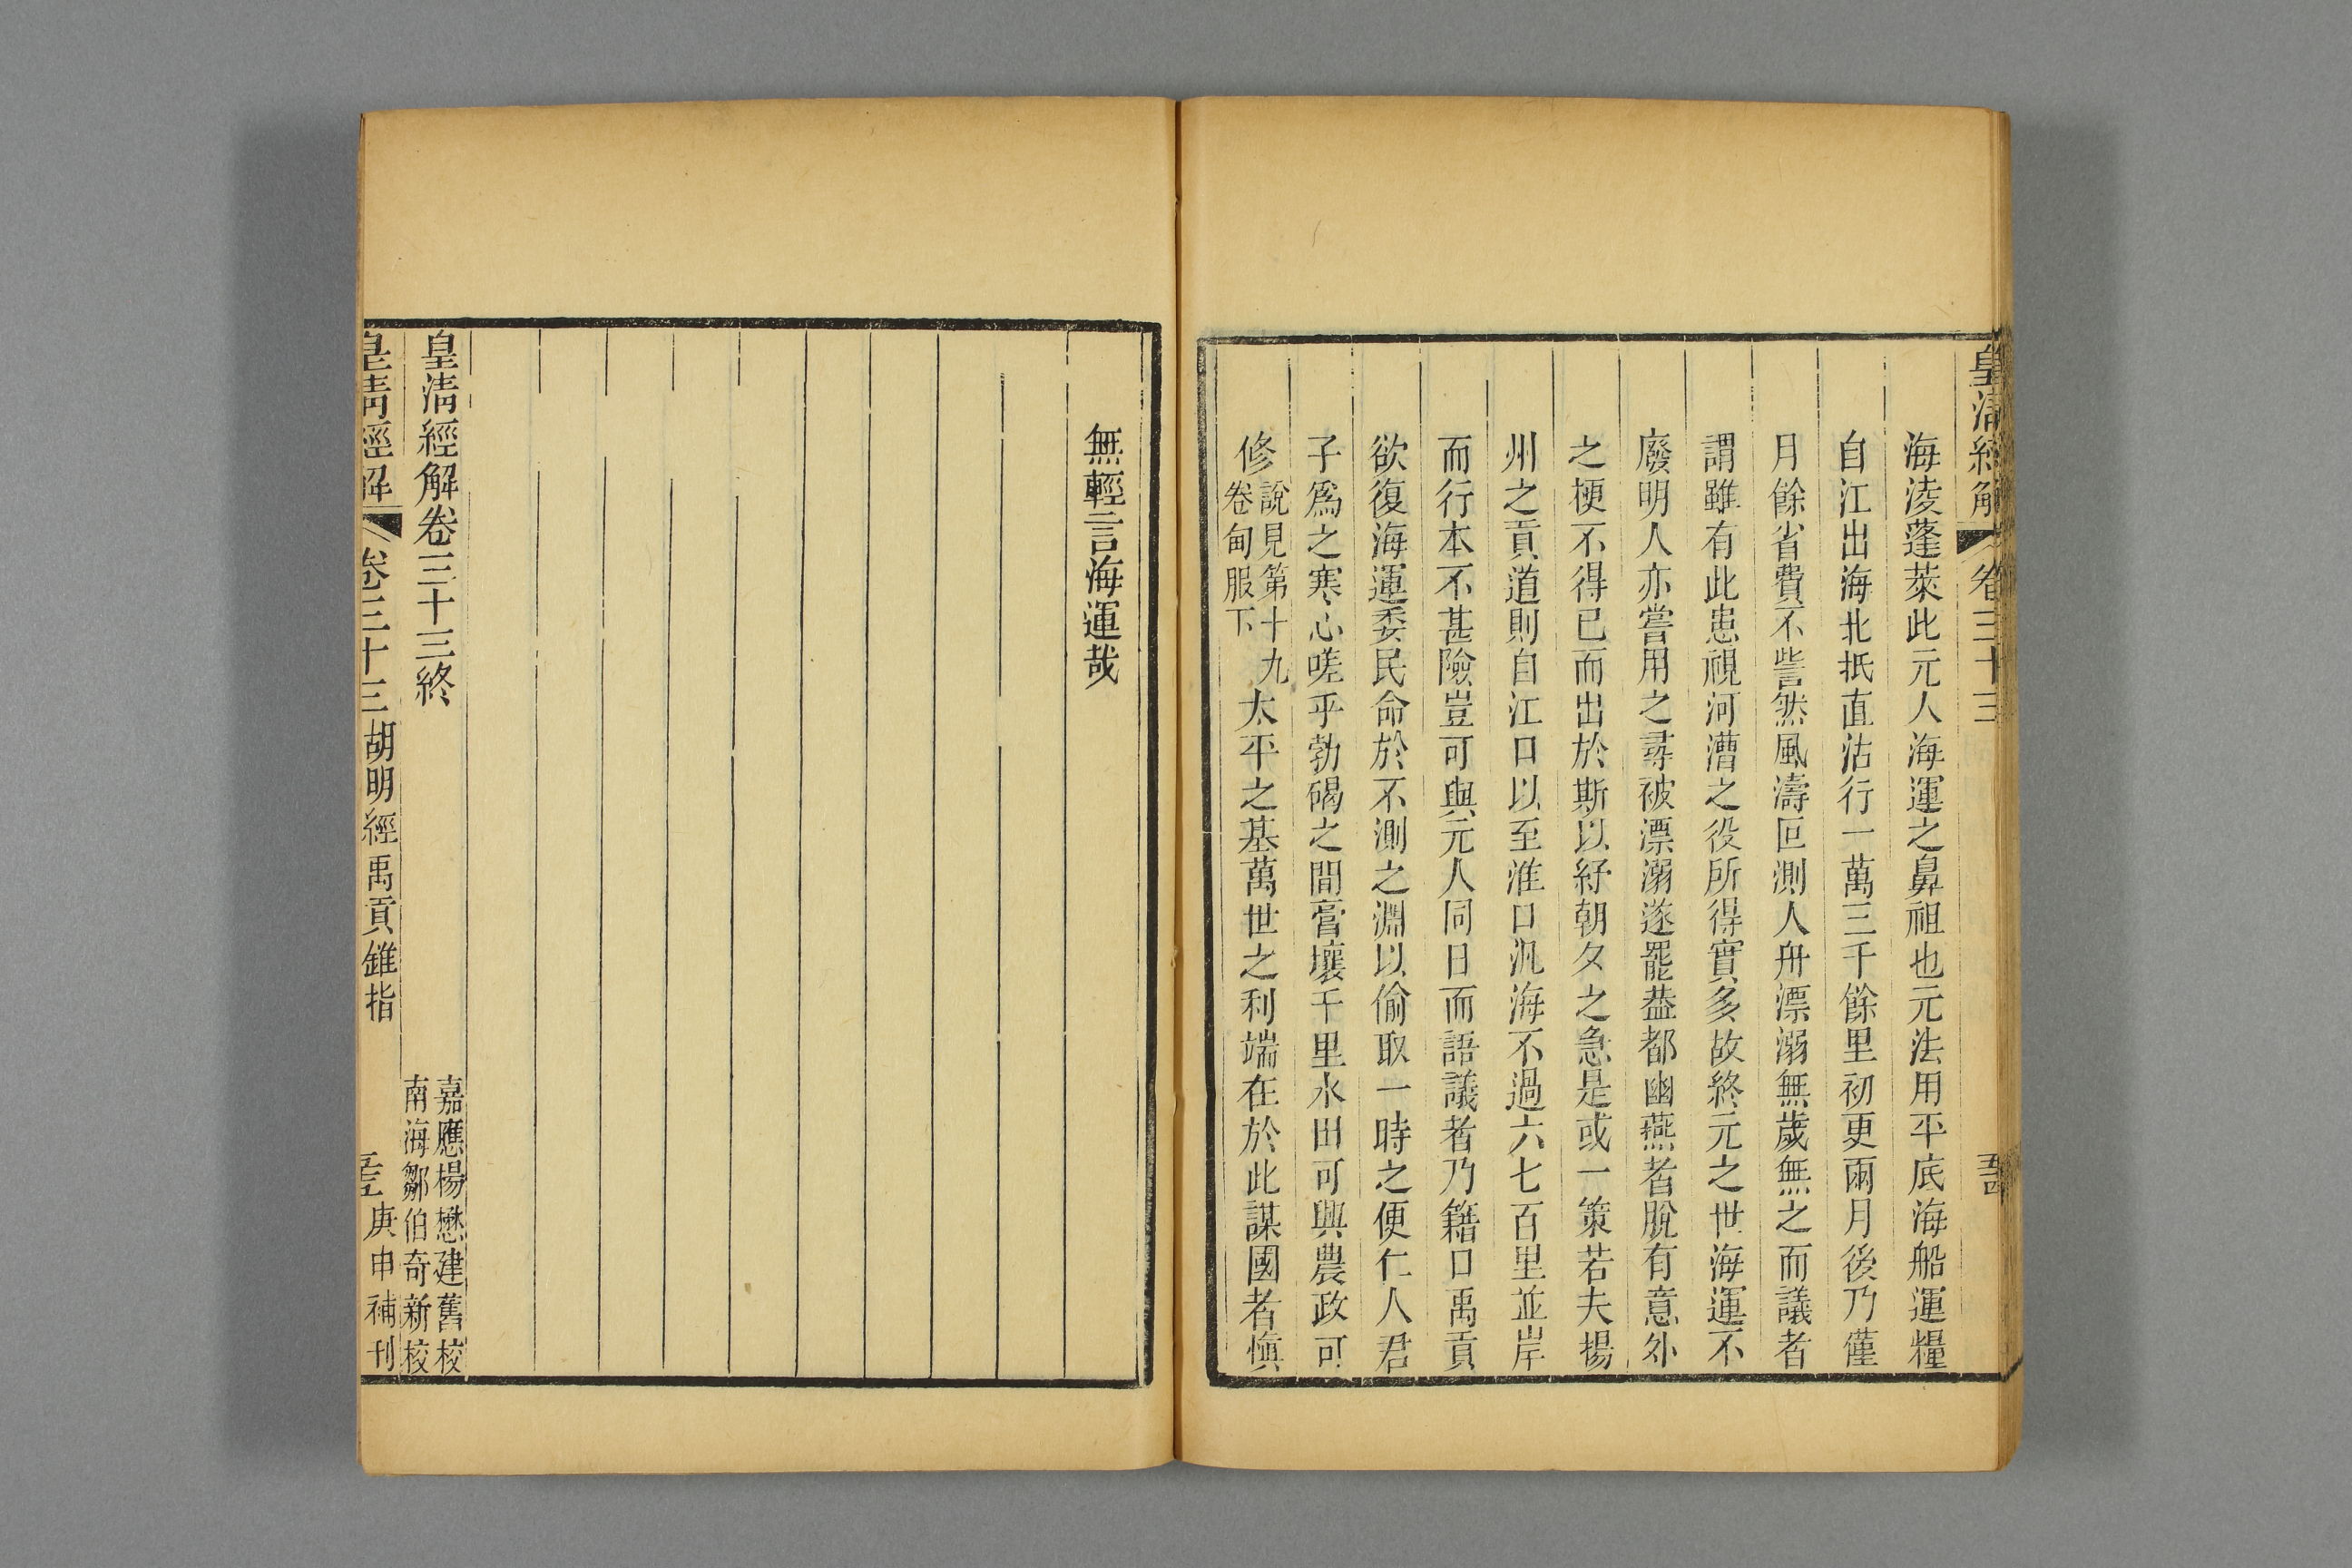 皇清經解 卷三十三
海淩蓬萊此元人海運之鼻祖也元法用平底海船運糧
自江出海北抵直沽行一萬三千餘里初更兩月後乃僅
月餘省費不訾然風濤叵測人舟漂溺無歲無之而議者
謂雖有此患視河漕之役所得實多故終元之世海運不
廢明人亦嘗用之尋被漂溺遂罷葢都幽燕者脫有意外
之梗不得已而出於斯以紓朝夕之急是或一策若夫揚
州之貢道則自江口以至淮口汎海不過六七百里並岸
而行本不甚險豈可與元人同日而語議者乃籍口禹貢
欲復海運委民命於不測之淵以偷取一時之便仁人君
子爲之寒心嗟乎勃碣之間膏壤千里水田可興農政可
修說見第十九卷甸服下太平之基萬世之利端在於此謀國者愼
無輕言海運哉
皇清經解卷三十三終
嘉應楊懋建舊校
南海鄒伯奇新校
皇清經解 卷三十三 胡明經禹貢錐指 庚申補刊